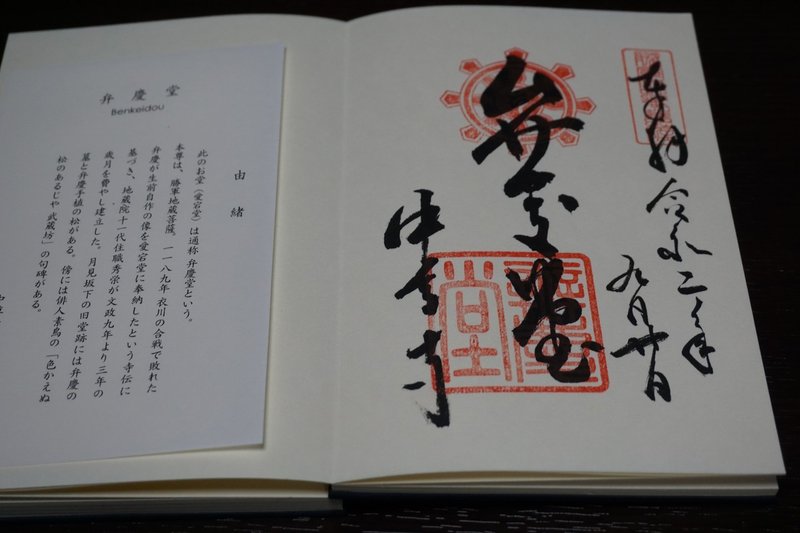 弁慶堂
Benkeidou
由緒
此のお堂（愛宕堂）は通称弁慶堂という。
本尊は、勝軍地蔵菩薩。一一八九年衣川の合戦で敗れた
弁慶が生前自作の像を愛宕堂に奉納したという寺伝に
基づき、地蔵院十一代住職秀栄が文政九年より三年の
歳月を費やし建立した。月見坂下の旧堂跡には弁慶の
墓と弁慶手植の松がある。傍には俳人素鳥の「色かえぬ
松のあるじや 武蔵坊」の句碑がある。
奉拝 令和二年
九月廿日
弁慶堂
中尊寺